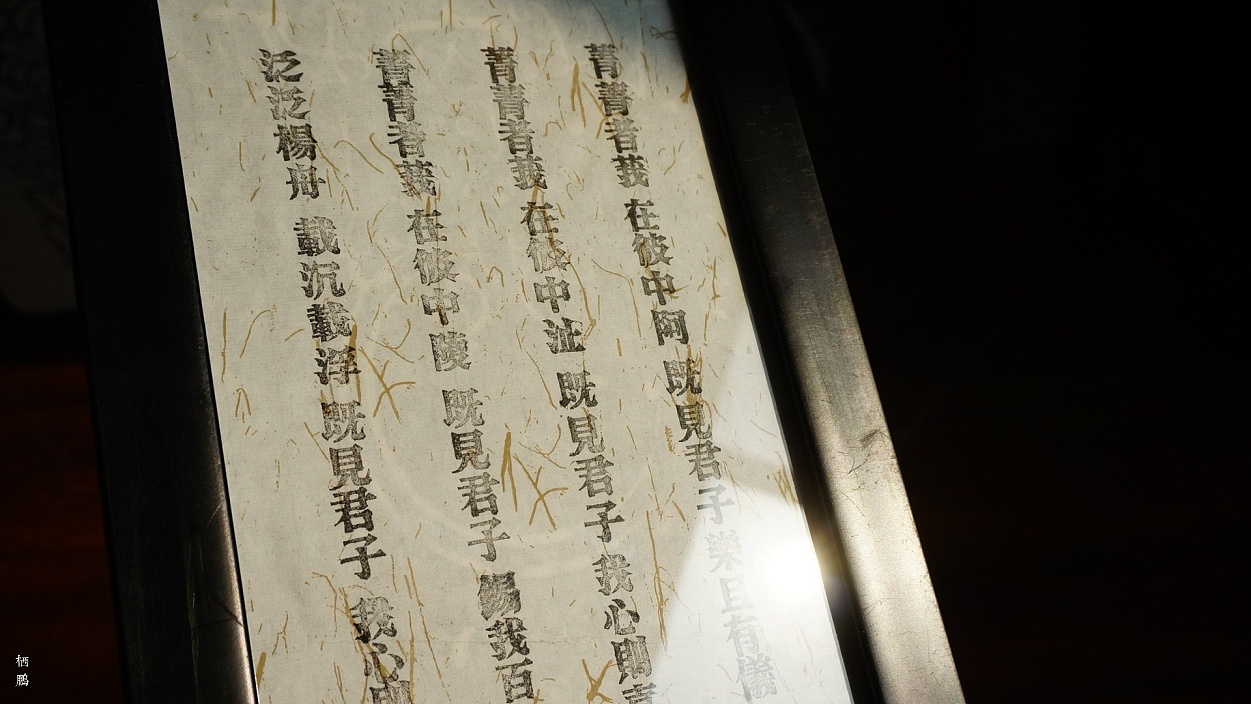 菁菁者莪 在彼中阿 既見君子 樂且有儀
菁菁者莪 在彼中沚 既見君子 我心則喜
菁菁者莪 在彼中陵 既見君子 錫我百
泛泛楊舟 載沉載浮 既見君子 我心則
栖鹏